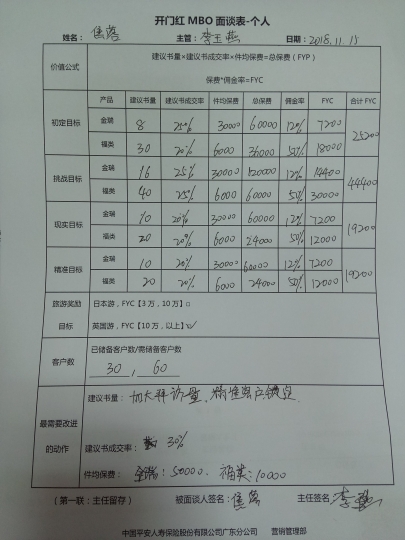 开门红 MBO 面谈表-个人
姓名： 主管：李玉燕 日期：2018.11.15
价值公式 建议书量×建议书成交率×件均保费=总保费（FYP）
保费*佣金率=FYC
产品 建议书量 建议书成交率 件均保费 总保费 佣金率 FYC 合计 FYC
初定目标 金瑞 8 25% 30000 60000 12% 7200 25200
福类 30 20% 6000 36000 50% 18000
挑战目标 金瑞 16 25% 30000 120000 12% 14400 44400
福类 40 25% 6000 60000 50% 30000
现实目标 金瑞 10 20% 30000 60000 12% 7200 19200
福类 20 20% 6000 24000 50% 12000
精准目标 金瑞 10 20% 30000 60000 12% 7200 19200
福类 20 20% 6000 24000 50% 12000
旅游奖励 日本游，FYC【3万，10万】□
目标 英国游，FYC【10万，以上】☑
客户数 已储备客户数/需储备客户数
30 , 60
最需要改进的动作 建议书量：加大拜访量、精准客户锁定
建议书成交率： 30%
件均保费：金瑞：50000、福类：10000
（第一联：主任留存） 被面谈人签名： 主任签名：
中国平安人寿保险股份有限公司广东分公司 营销管理部